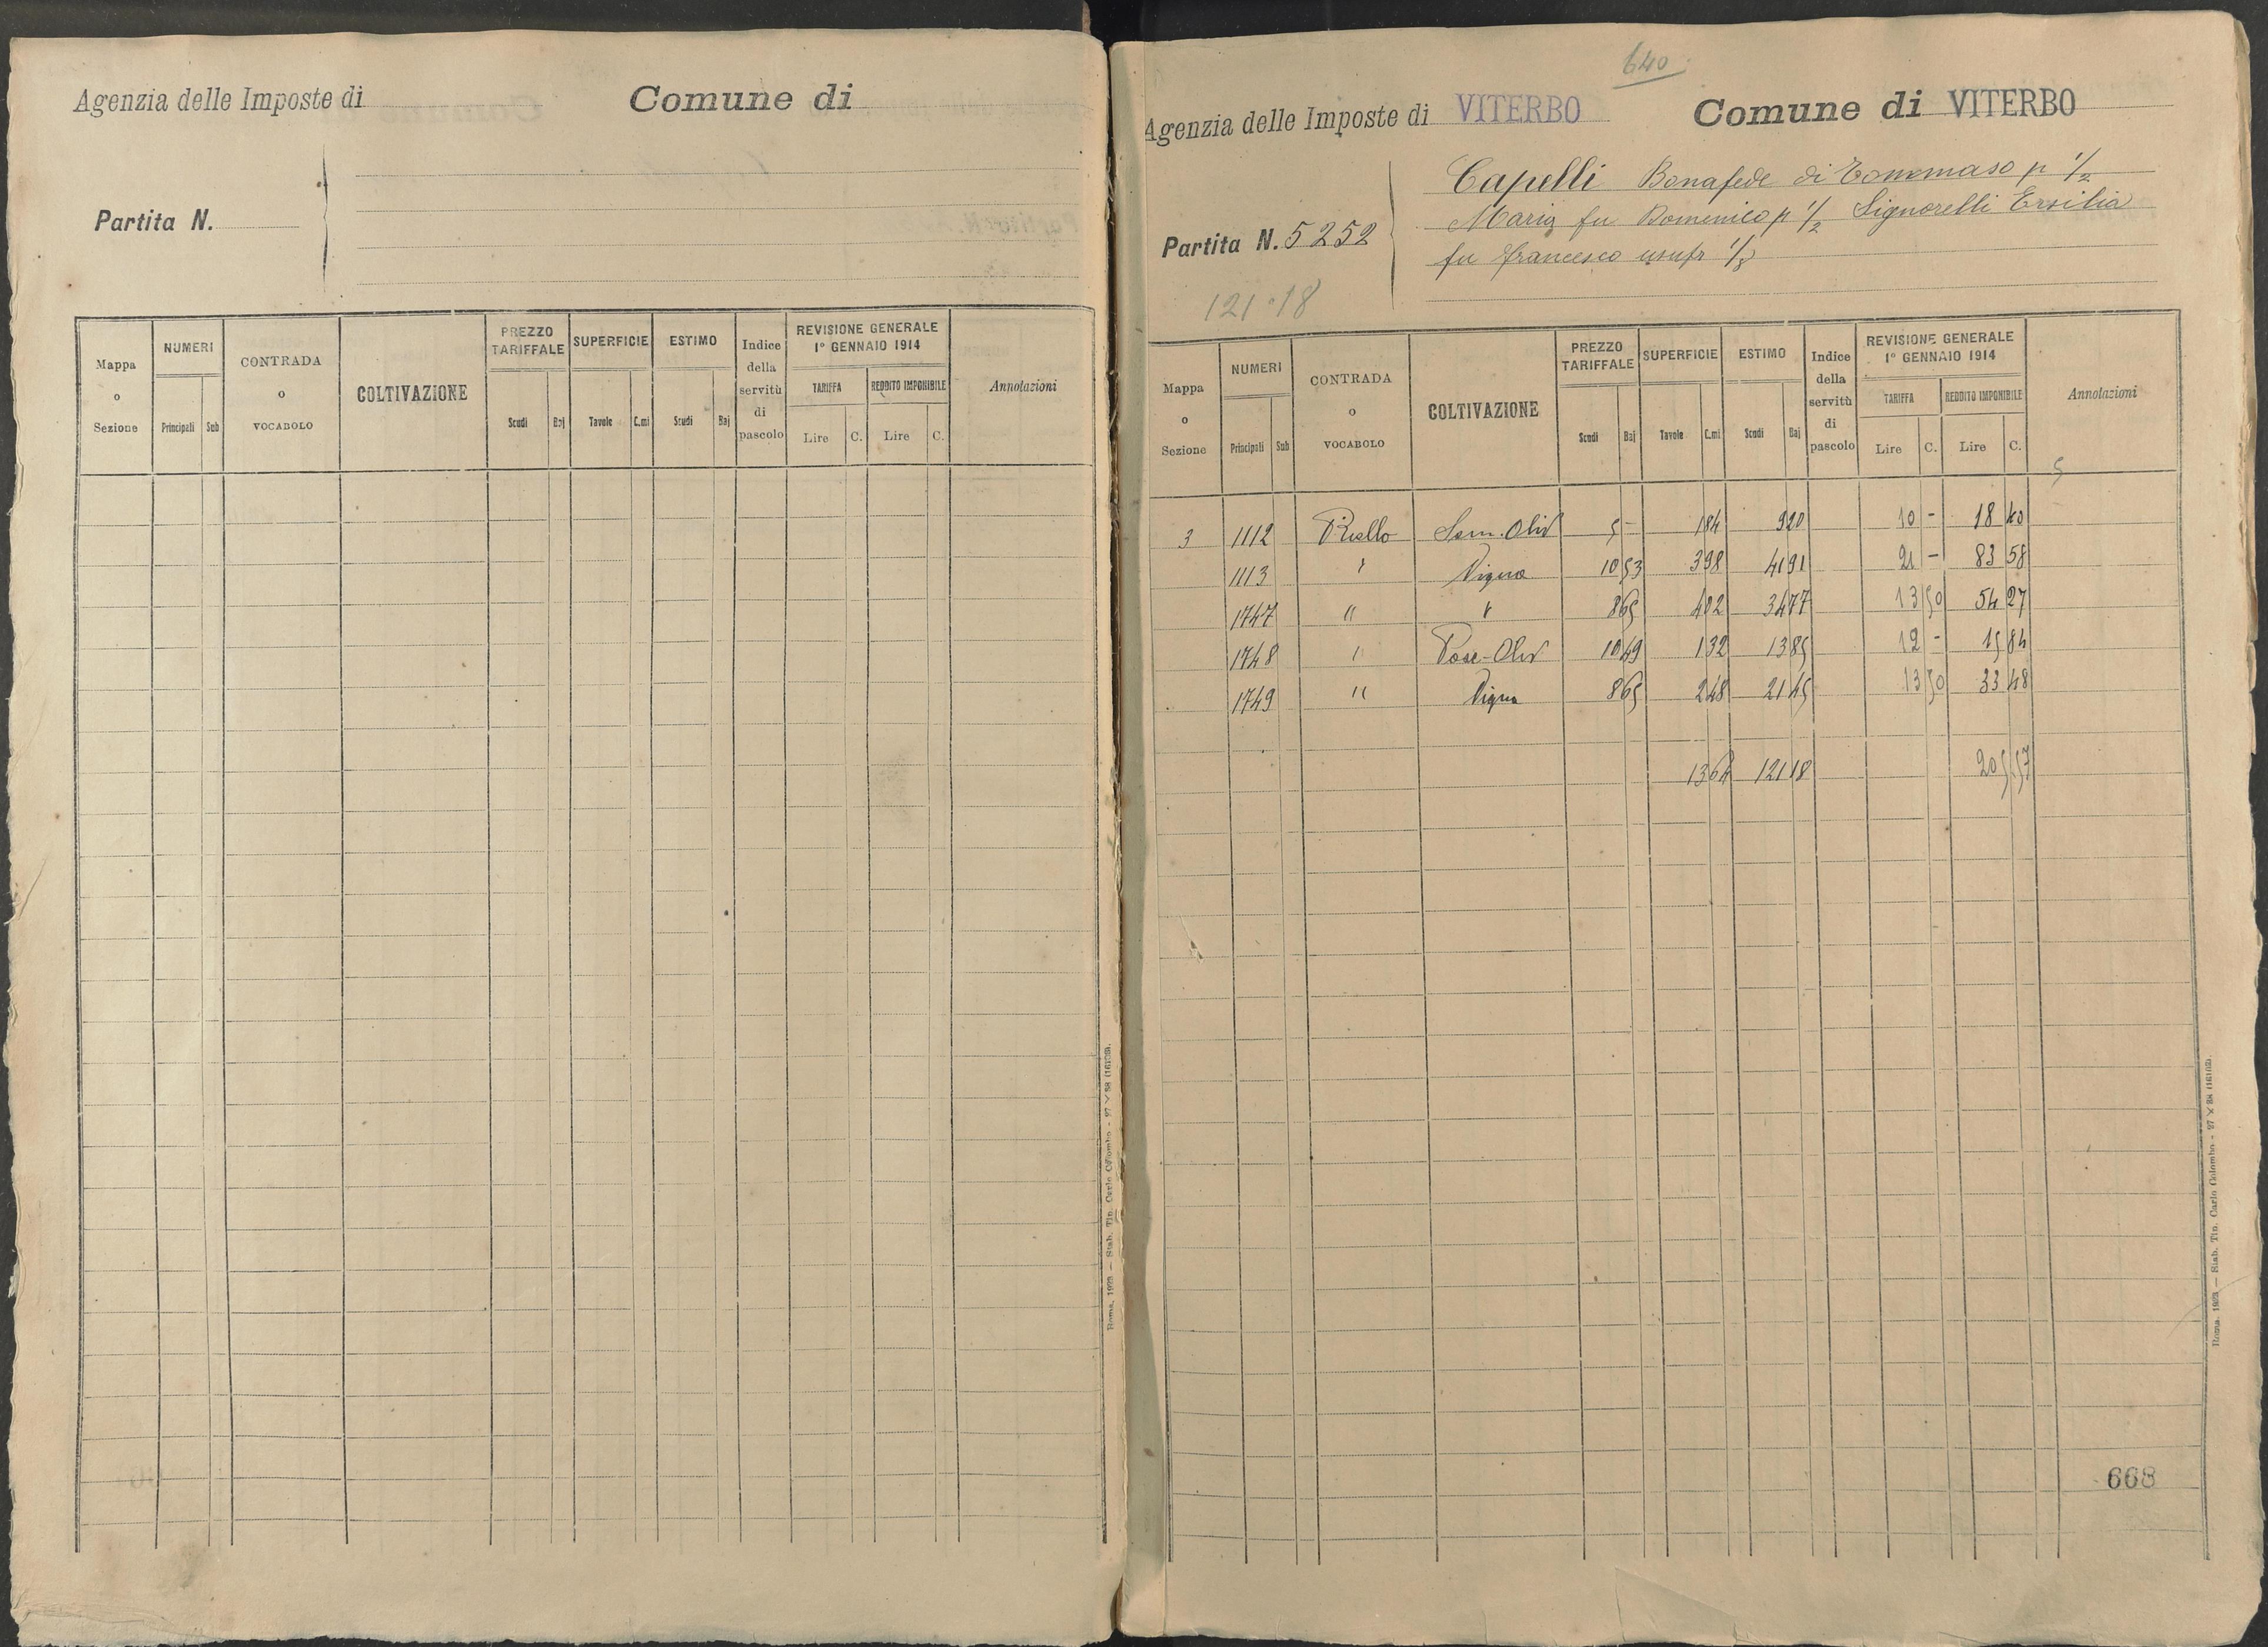 Agenzia delle Imposte di Comune di
Partita N.
Mappa o Sezione NUMERI Principali Sub CONTRADA o VOCABOLO COLTIVAZIONE PREZZO TARIFFALE Scudi Baj SUPERFICIE Tavole C.mi ESTIMO Scudi Baj Indice della servitù di pascolo REVISIONE GENERALE 1° GENNAIO 1914 TARIFFA Lire C. REDDITO IMPONIBILE Lire C. Annotazioni
Roma, 1923 — Stab. Tip. Carlo Colombo - 97 × 88 (16103).
640
Agenzia delle Imposte di VITERBO Comune di VITERBO
Capelli Bonafede di Tommaso p 1/2
Maria fu Domenico p 1/2 Signorelli Ersilia
Partita N. 5252
fu Francesco usufr 1/3
121.18
Mappa o Sezione NUMERI Principali Sub CONTRADA o VOCABOLO COLTIVAZIONE PREZZO TARIFFALE Scudi Baj SUPERFICIE Tavole C.mi ESTIMO Scudi Baj Indice della servitù di pascolo REVISIONE GENERALE 1° GENNAIO 1914 TARIFFA Lire C. REDDITO IMPONIBILE Lire C. Annotazioni
5
3 1112 Riello Sem. Oliv 5 - 1 84 9 20 10 - 18 40
1113 " Vigna 10 53 3 98 41 91 21 - 83 58
1747 " " 8 65 4 02 34 77 13 50 54 27
1748 " Pasc-Oliv 10 49 1 32 13 85 12 - 15 84
1749 " Vigna 8 65 2 48 21 45 13 50 33 48
13 64 121 18 205 57
668
Roma, 1923 — Stab. Tip. Carlo Colombo - 97 × 88 (16103).